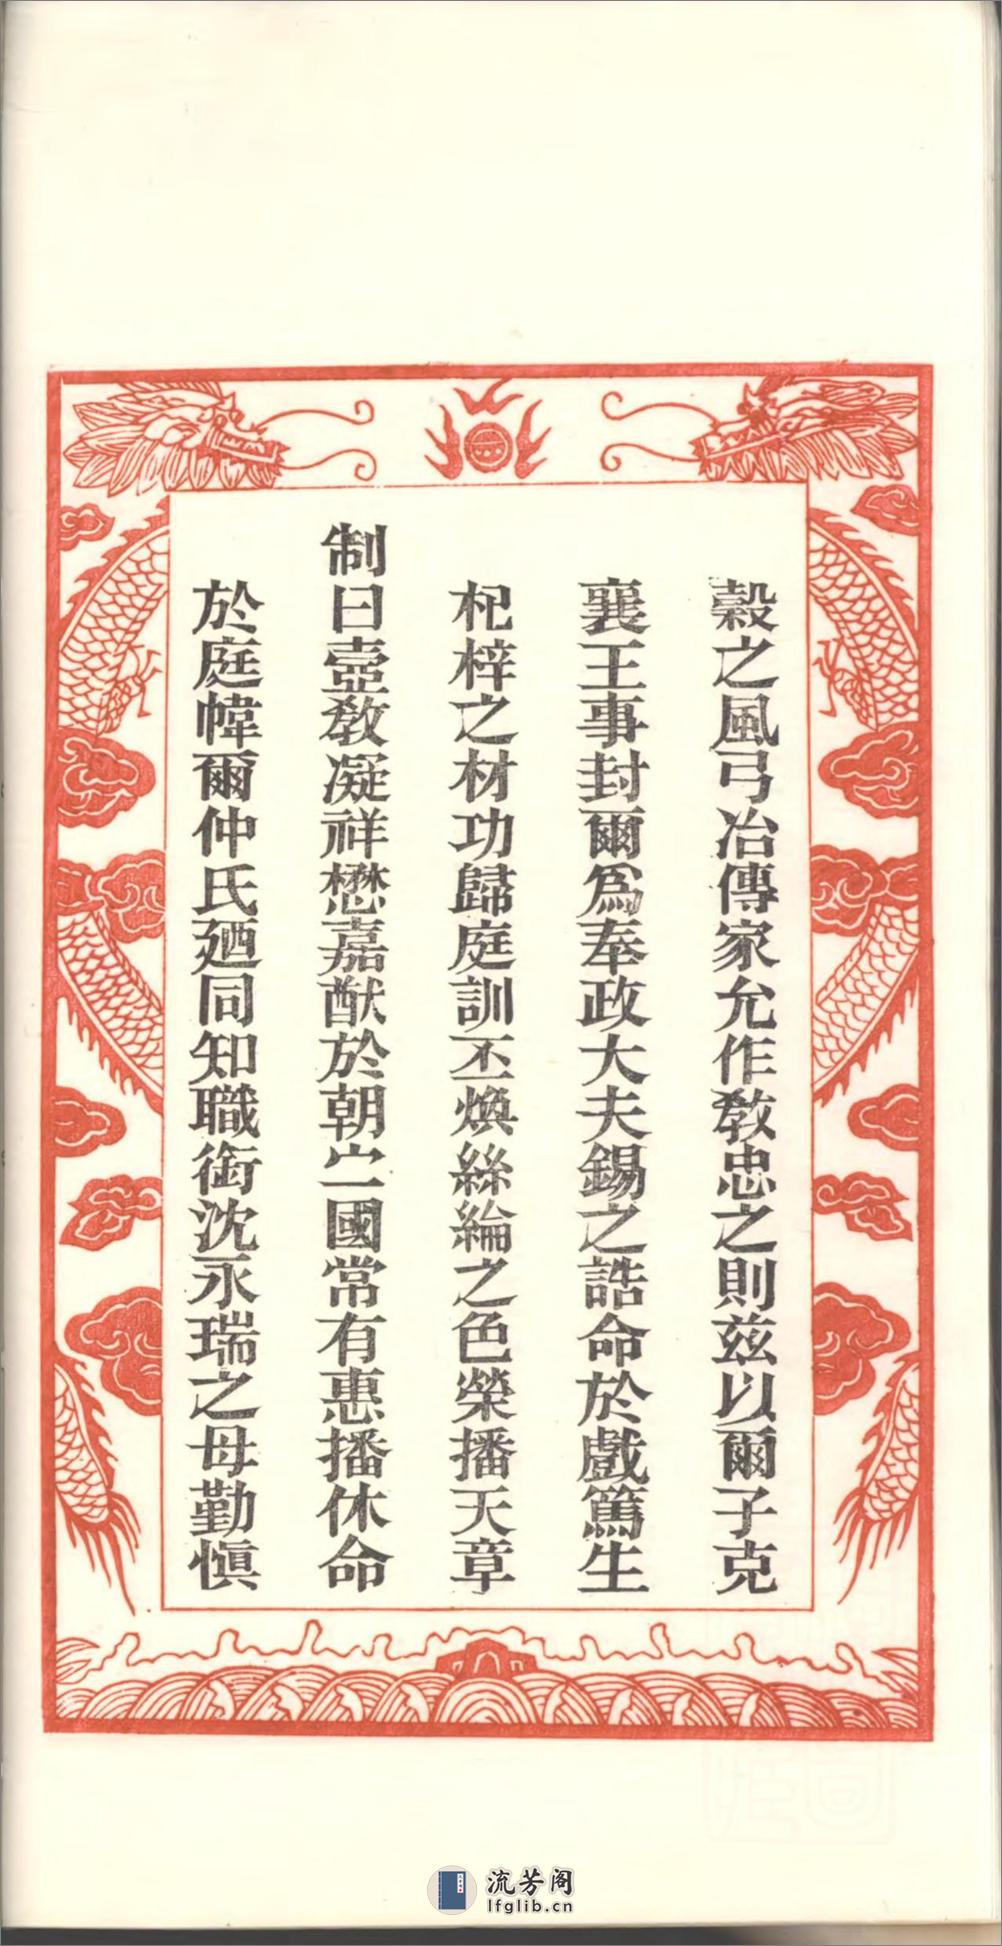 穀之風弓冶傳家允作教忠之則兹以爾子克
襄王事封爾為奉政大夫錫之誥命於戲篤生
杞梓之材功歸庭訓丕煥絲綸之色榮播天章
制曰壼教凝祥懋嘉猷於朝宁國常有惠播休命
於庭幃爾仲氏廼同知職銜沈永瑞之母勤慎
流芳阁
lfglib.cn